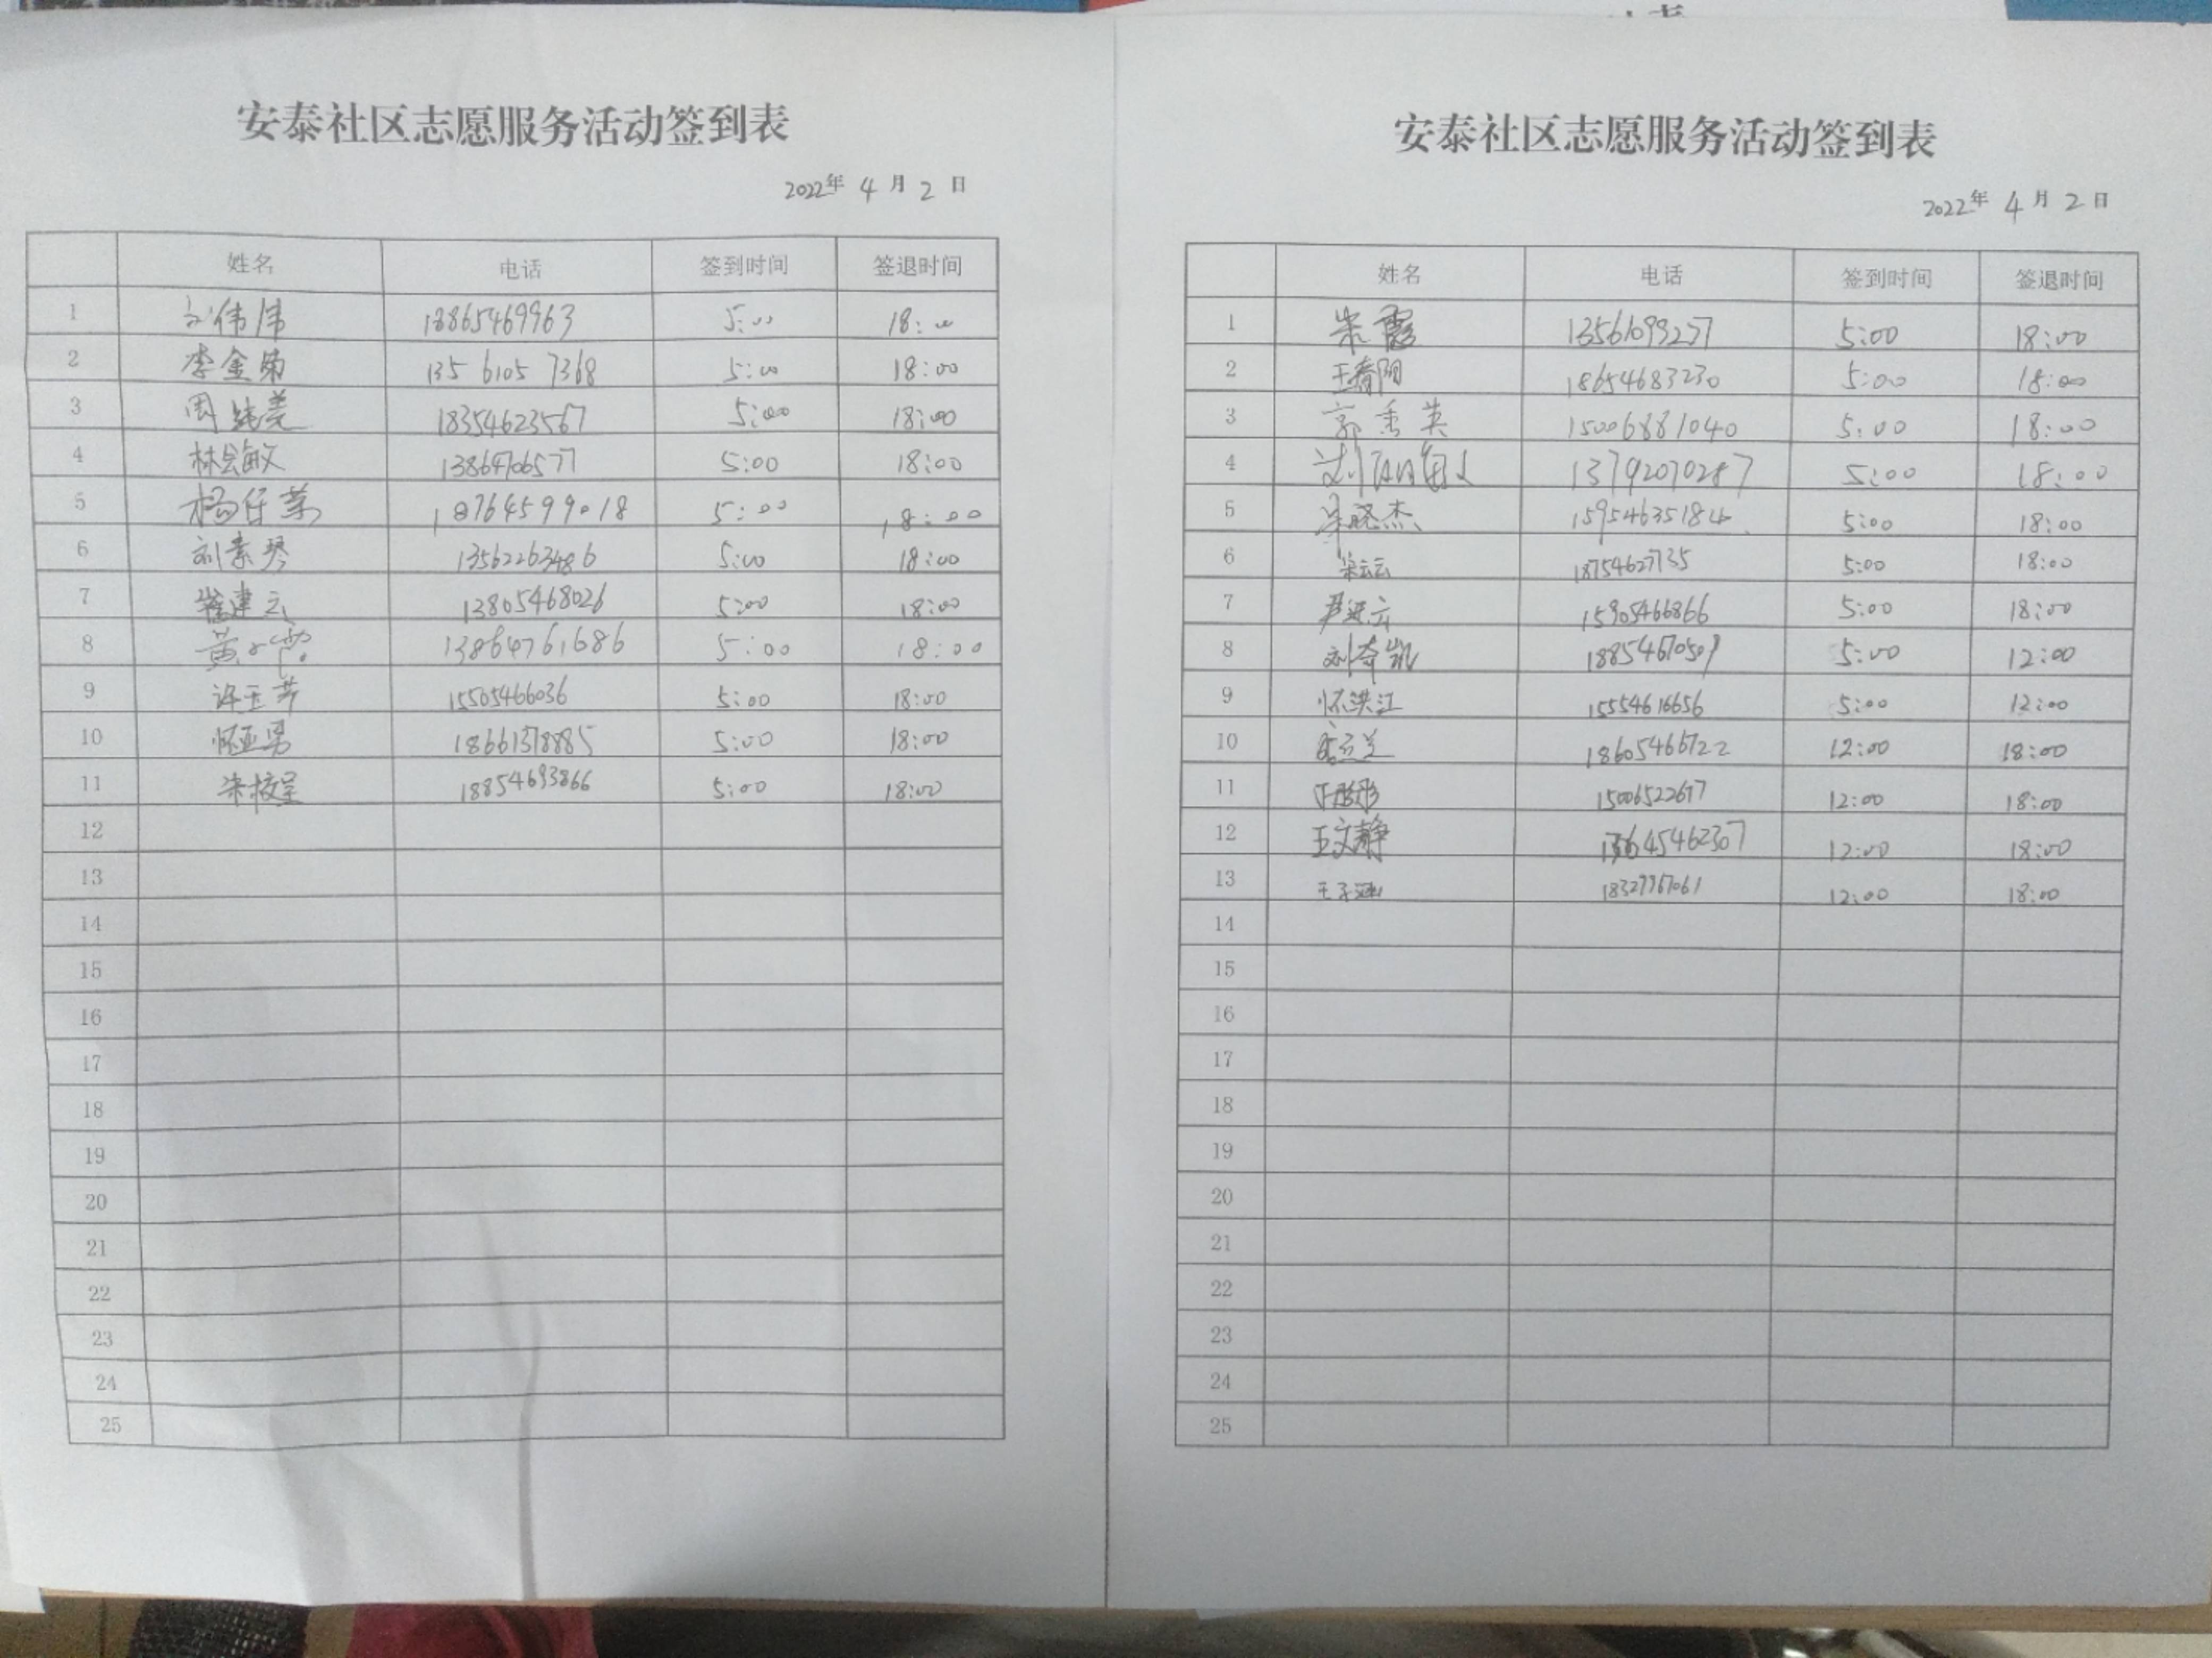 安泰社区志愿服务活动签到表
2022年 4 月 2 日
姓名 电话 签到时间 签退时间
1 刘伟伟 13865469963 5:00 18:00
2 李金菊 135 6105 7368 5:00 18:00
3 周 18354623567 5:00 18:00
4 林会敏 13864706577 5:00 18:00
5 杨仔英 18764599018 5:00 18:00
6 刘素琴 13562263486 5:00 18:00
7 崔建云 13805468026 5:00 18:00
8 黄 13864761686 5:00 18:00
9 许玉芳 15505466036 5:00 18:00
10 怀亚男 18661378885 5:00 18:00
11 18854693866 5:00 18:00
12
13
14
15
16
17
18
19
20
21
22
23
24
25
安泰社区志愿服务活动签到表
2022年 4 月 2 日
姓名 电话 签到时间 签退时间
1 宋霞 13561099237 5:00 18:00
2 王春阳 18654683230 5:00 18:00
3 郭秀英 15006881040 5:00 18:00
4 13792070287 5:00 18:00
5 晓杰 15954635184 5:00 18:00
6 云云 18754627135 5:00 18:00
7 尹延云 15905466866 5:00 18:00
8 刘奇凯 18854670509 5:00 12:00
9 怀洪江 15554616656 5:00 12:00
10 18605466722 12:00 18:00
11 15006522677 12:00 18:00
12 王文静 13645462307 12:00 18:00
13 王子涵 18327967061 12:00 18:00
14
15
16
17
18
19
20
21
22
23
24
25